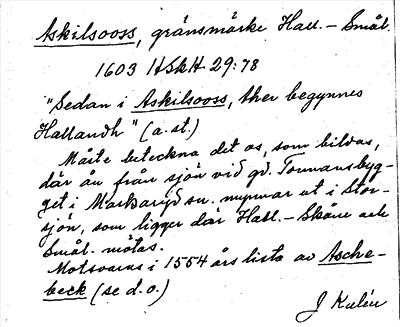 Askilsooss, gränsmärke Hall. – Smål.
1603 HSkH 29:78
"Sedan i Askilsooss, ther begynnes
Hallandh" (a. st.)
Måste beteckna det os, som bildas,
där ån från sjön vid gd. Tormansbyg-
get i Markaryd sn. mynnar ut i Stor-
sjön, som ligger där Hall. – Skåne och
Smål. mötas.
Motsvaras i 1554 års lista av Asche-
beck (se d. o.)
J Kalén